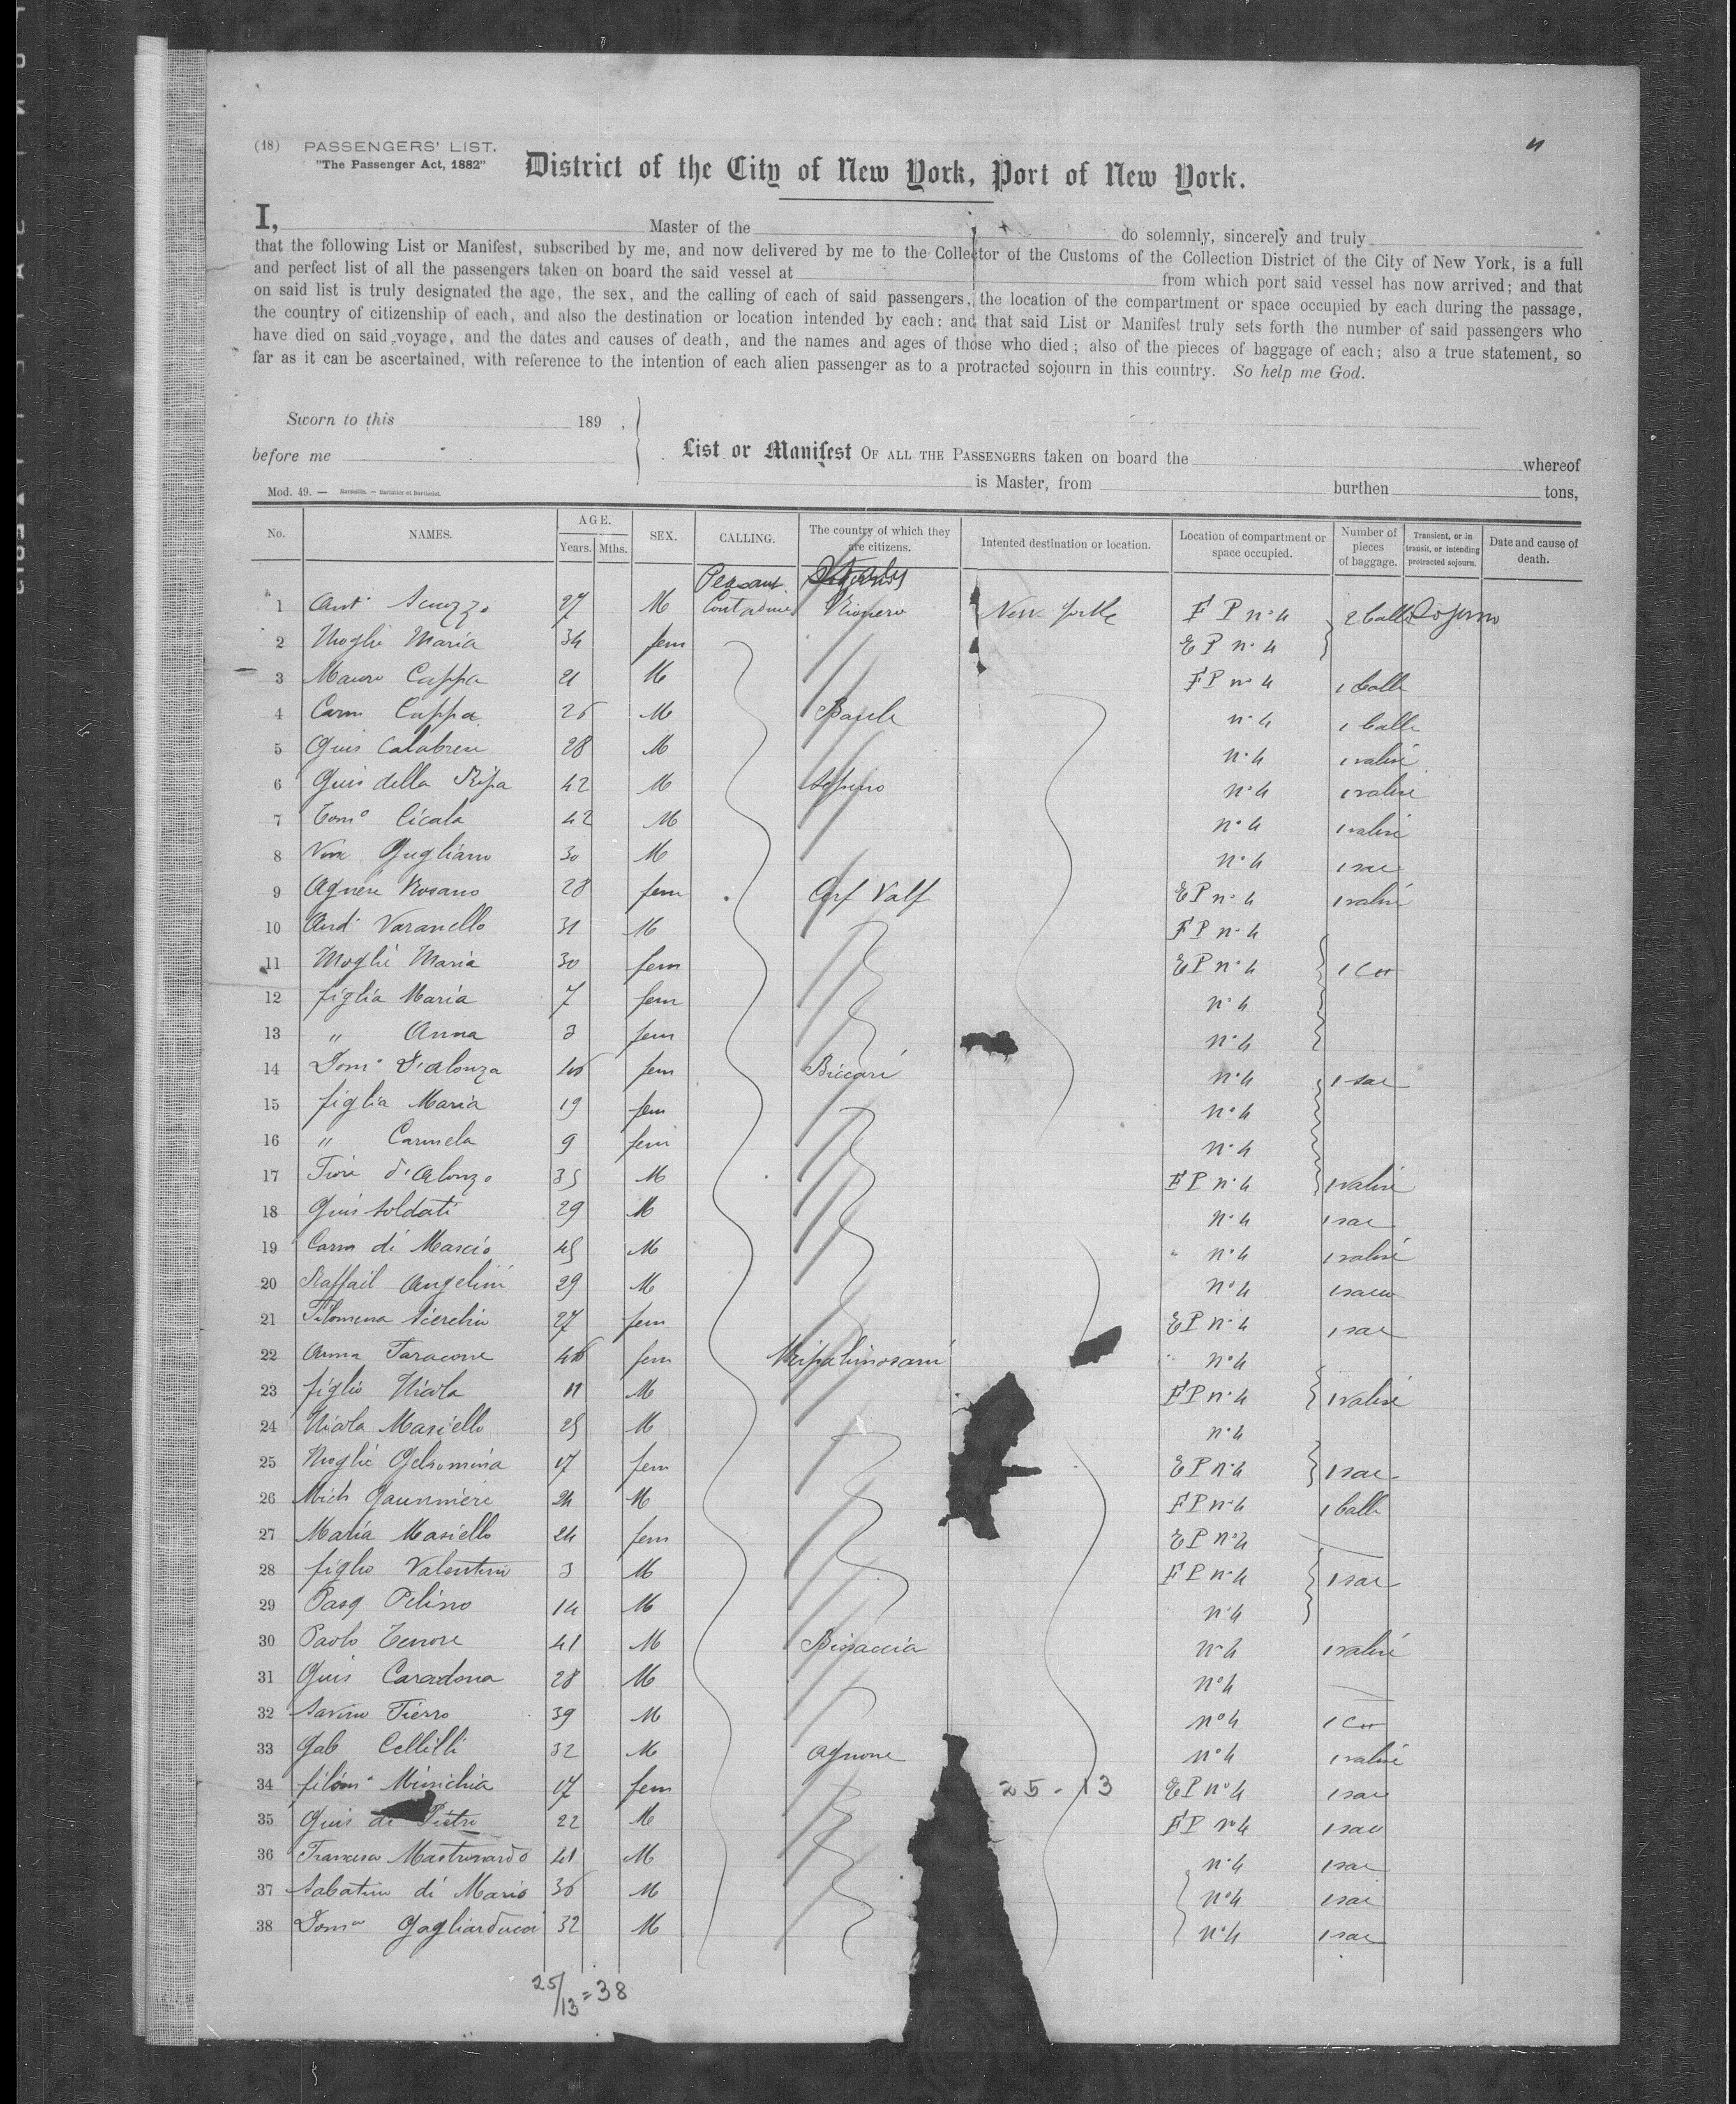 (18) PASSENGERS' LIST.
"The Passenger Act, 1882"
District of the City of New York, Port of New York.
I, Master of the do solemnly, sincerely and truly
that the following List or Manifest, subscribed by me, and now delivered by me to the Collector of the Customs of the Collection District of the City of New York, is a full
and perfect list of all the passengers taken on board the said vessel at from which port said vessel has now arrived; and that
on said list is truly designated the age, the sex, and the calling of each of said passengers, the location of the compartment or space occupied by each during the passage,
the country of citizenship of each, and also the destination or location intended by each: and that said List or Manifest truly sets forth the number of said passengers who
have died on said voyage, and the dates and causes of death, and the names and ages of those who died; also of the pieces of baggage of each; also a true statement, so
far as it can be ascertained, with reference to the intention of each alien passenger as to a protracted sojourn in this country. So help me God.
Sworn to this 189 .
before me
List or Manifest OF ALL THE PASSENGERS taken on board the whereof
is Master, from burthen tons,
Mod. 49. — Marseille. — Barlatier et Barthelet.
No. NAMES. AGE. Years. Mths. SEX. CALLING. The country of which they are citizens. Intented destination or location. Location of compartment or space occupied. Number of pieces of baggage. Transient, or in transit, or intending protracted sojourn. Date and cause of death.
Peasant
1 Ant° 27 M Contadino Rionero New York F P n° 4 2 balle
2 Moglie Maria 34 fem E P n° 4
3 Mauro Cappa 21 M F P n° 4 1 balle
4 Carm Cappa 26 M n° 4 1 balle
5 Gius Calabrese 28 M n° 4 1 valise
6 Gius della Ripa 42 M Sepino n° 4 1 valise
7 Tom° Cicala 42 M n° 4 1 valise
8 Vinc Gugliano 30 M n° 4 1 sac
9 Agnese Rosano 28 fem Valf E P n° 4 1 valise
10 And Varanello 31 M F P n° 4
11 Moglie Maria 30 fem E P n° 4 1
12 figlia Maria 7 fem n° 4
13 " Anna 3 fem n° 4
14 Dom° D'Alonza 46 fem Biccari n° 4 1 sac
15 figlia Maria 19 fem n° 4
16 " Carmela 9 fem n° 4
17 Fiore d'Alonzo 35 M F P n° 4 1 valise
18 Gius Soldati 29 M n° 4 1 sac
19 Carm di Mascio 45 M n° 4 1 valise
20 Raffail Angelini 29 M n° 4 1 sac
21 Filomena 27 fem E P n° 4 1 sac
22 Anna Taracone 46 fem Ripalimosani n° 4
23 figlio Nicola 11 M F P n° 4 1 valise
24 Nicola Masiello 25 M n° 4
25 Moglie Gelsomina 17 fem E P n° 4 1 sac
26 Mich 24 M F P n° 4 1 balle
27 Maria Masiello 24 fem E P n° 4
28 figlio Valentino 3 M F P n° 4 1 sac
29 Pasq Pelino 14 M n° 4
30 Paolo Tenore 41 M Bisaccia n° 4 1 valise
31 Gius Caradona 28 M n° 4
32 Savino Fierro 39 M n° 4 1
33 Gab Cellilli 32 M Agnone n° 4 1 valise
34 filom° Minichia 17 fem 25 - 13 E P n° 4 1 sac
35 Gius di Pietro 22 M F P n° 4 1 sac
36 Francesco Mastronardo 41 M n° 4 1 sac
37 Sabatino di Mario 36 M n° 4 1 sac
38 Dom° Gagliarducci 32 M n° 4 1 sac
25/13 = 38